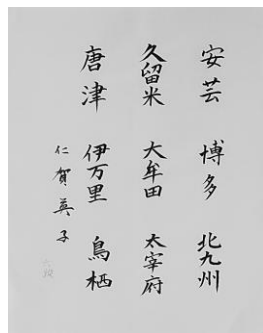 安芸 博多 北九州
久留米 大牟田 太宰府
唐津 伊万里 鳥栖
仁賀英子